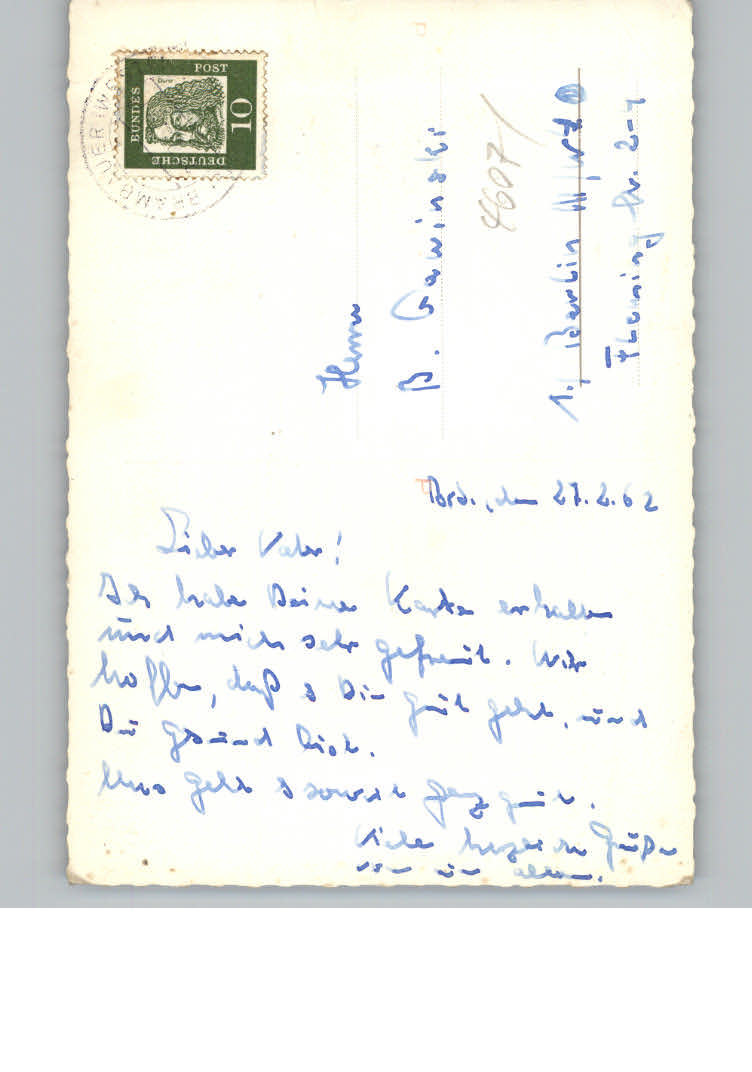 DEUTSCHE
BUNDES
POST
10
Dürer
BRAMBAUER (WESTF
46071
Herrn
B.
1.) Berlin
Brb., den 27.2.62
Lieber Vater!
Ich habe Deine Karte erhalten
und mich sehr gefreut. Wir
hoffen, daß es Dir gut geht, und
Du gesund bist.
Uns geht es soweit ganz gut.
Viele herzliche Grüße
von uns allen.